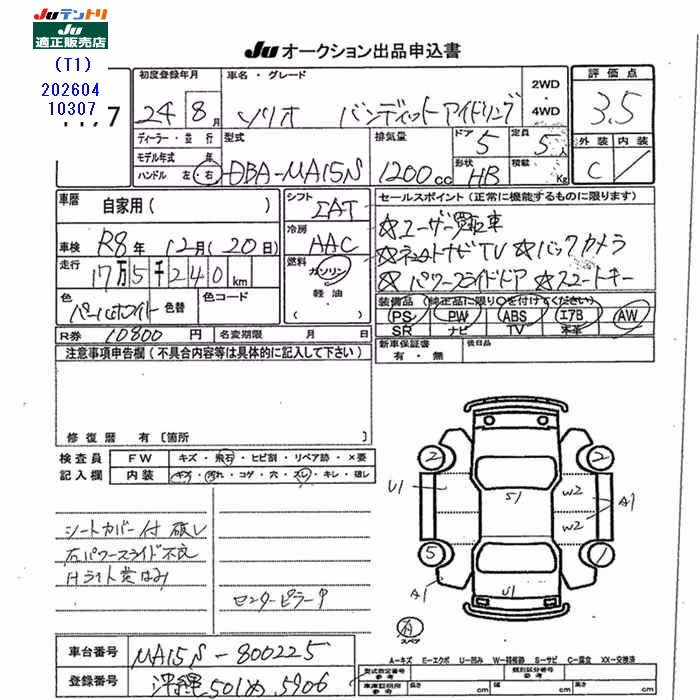 JUテントリ
JU
適正販売店
(T1)
202604
10307
JU オークション出品申込書
初度登録年月
24年 8月
車名・グレード
ソリオ バンディット アイドリング
2WD
4WD
評価点
3.5
外装 内装
C
ディーラー・並行
モデル年式 年
ハンドル 左・右
型式
DBA-MA15S
排気量
1200cc
ドア 5
形状 HB
定員 5人
積載 Kg
車歴 自家用( )
車検 R8年 12月(20日)
走行 17万5千240km
色 パールホワイト 色替 色コード
R券 10800円 名変期限 月 日
シフト
冷房 AAC
燃料 ガソリン・軽油
( )
セールスポイント(正常に機能するものに限ります)
☆ユーザー買取車
TV ☆バックカメラ
☆パワースライドドア ☆スマートキー
装備品(純正品に限り○を付けてください)
PS PW ABS エアB AW
SR ナビ TV 本革
新車保証書
有・無
後日品
注意事項申告欄(不具合内容等は具体的に記入して下さい)
修復歴 有[箇所
検査員
記入欄
FW キズ・飛石・ヒビ割・リペア跡・×要
内装 キズ・汚れ・コゲ・穴・スレ・キレ・破レ
シートカバー付 破レ
左パワースライド不良
Hライト黄ばみ
センターピラー
2 2
U1 S1 W2 A1
W2
5 1
A1 U1
有
スペア
車台番号 MA15S-800225
登録番号 沖縄 501 め 5906
A-キズ E-エクボ U-凹み W-補修跡 S-サビ C-腐食 XX-交換済
型式指定番号
参考
類別区分番号
参考
車庫証明用
参考
長さ cm 幅 cm 高さ cm